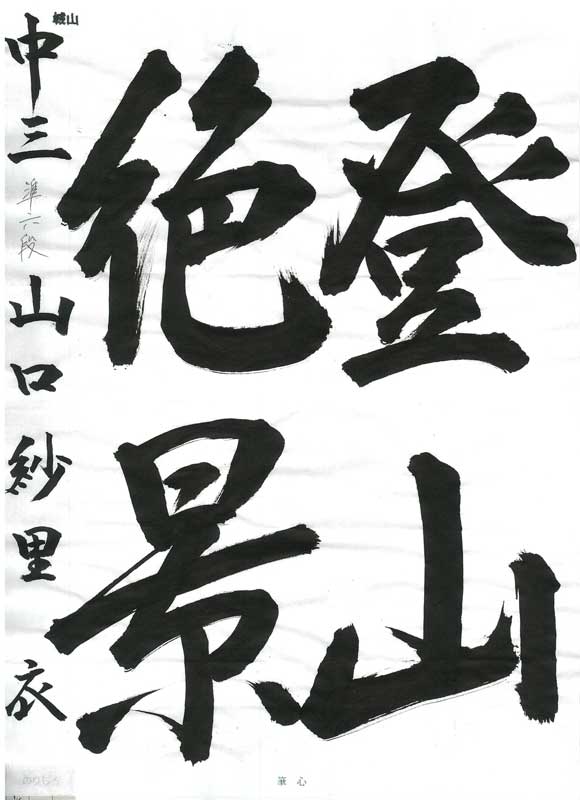 登山
絶景
中三 準六段 山口紗里衣
城山
筆心